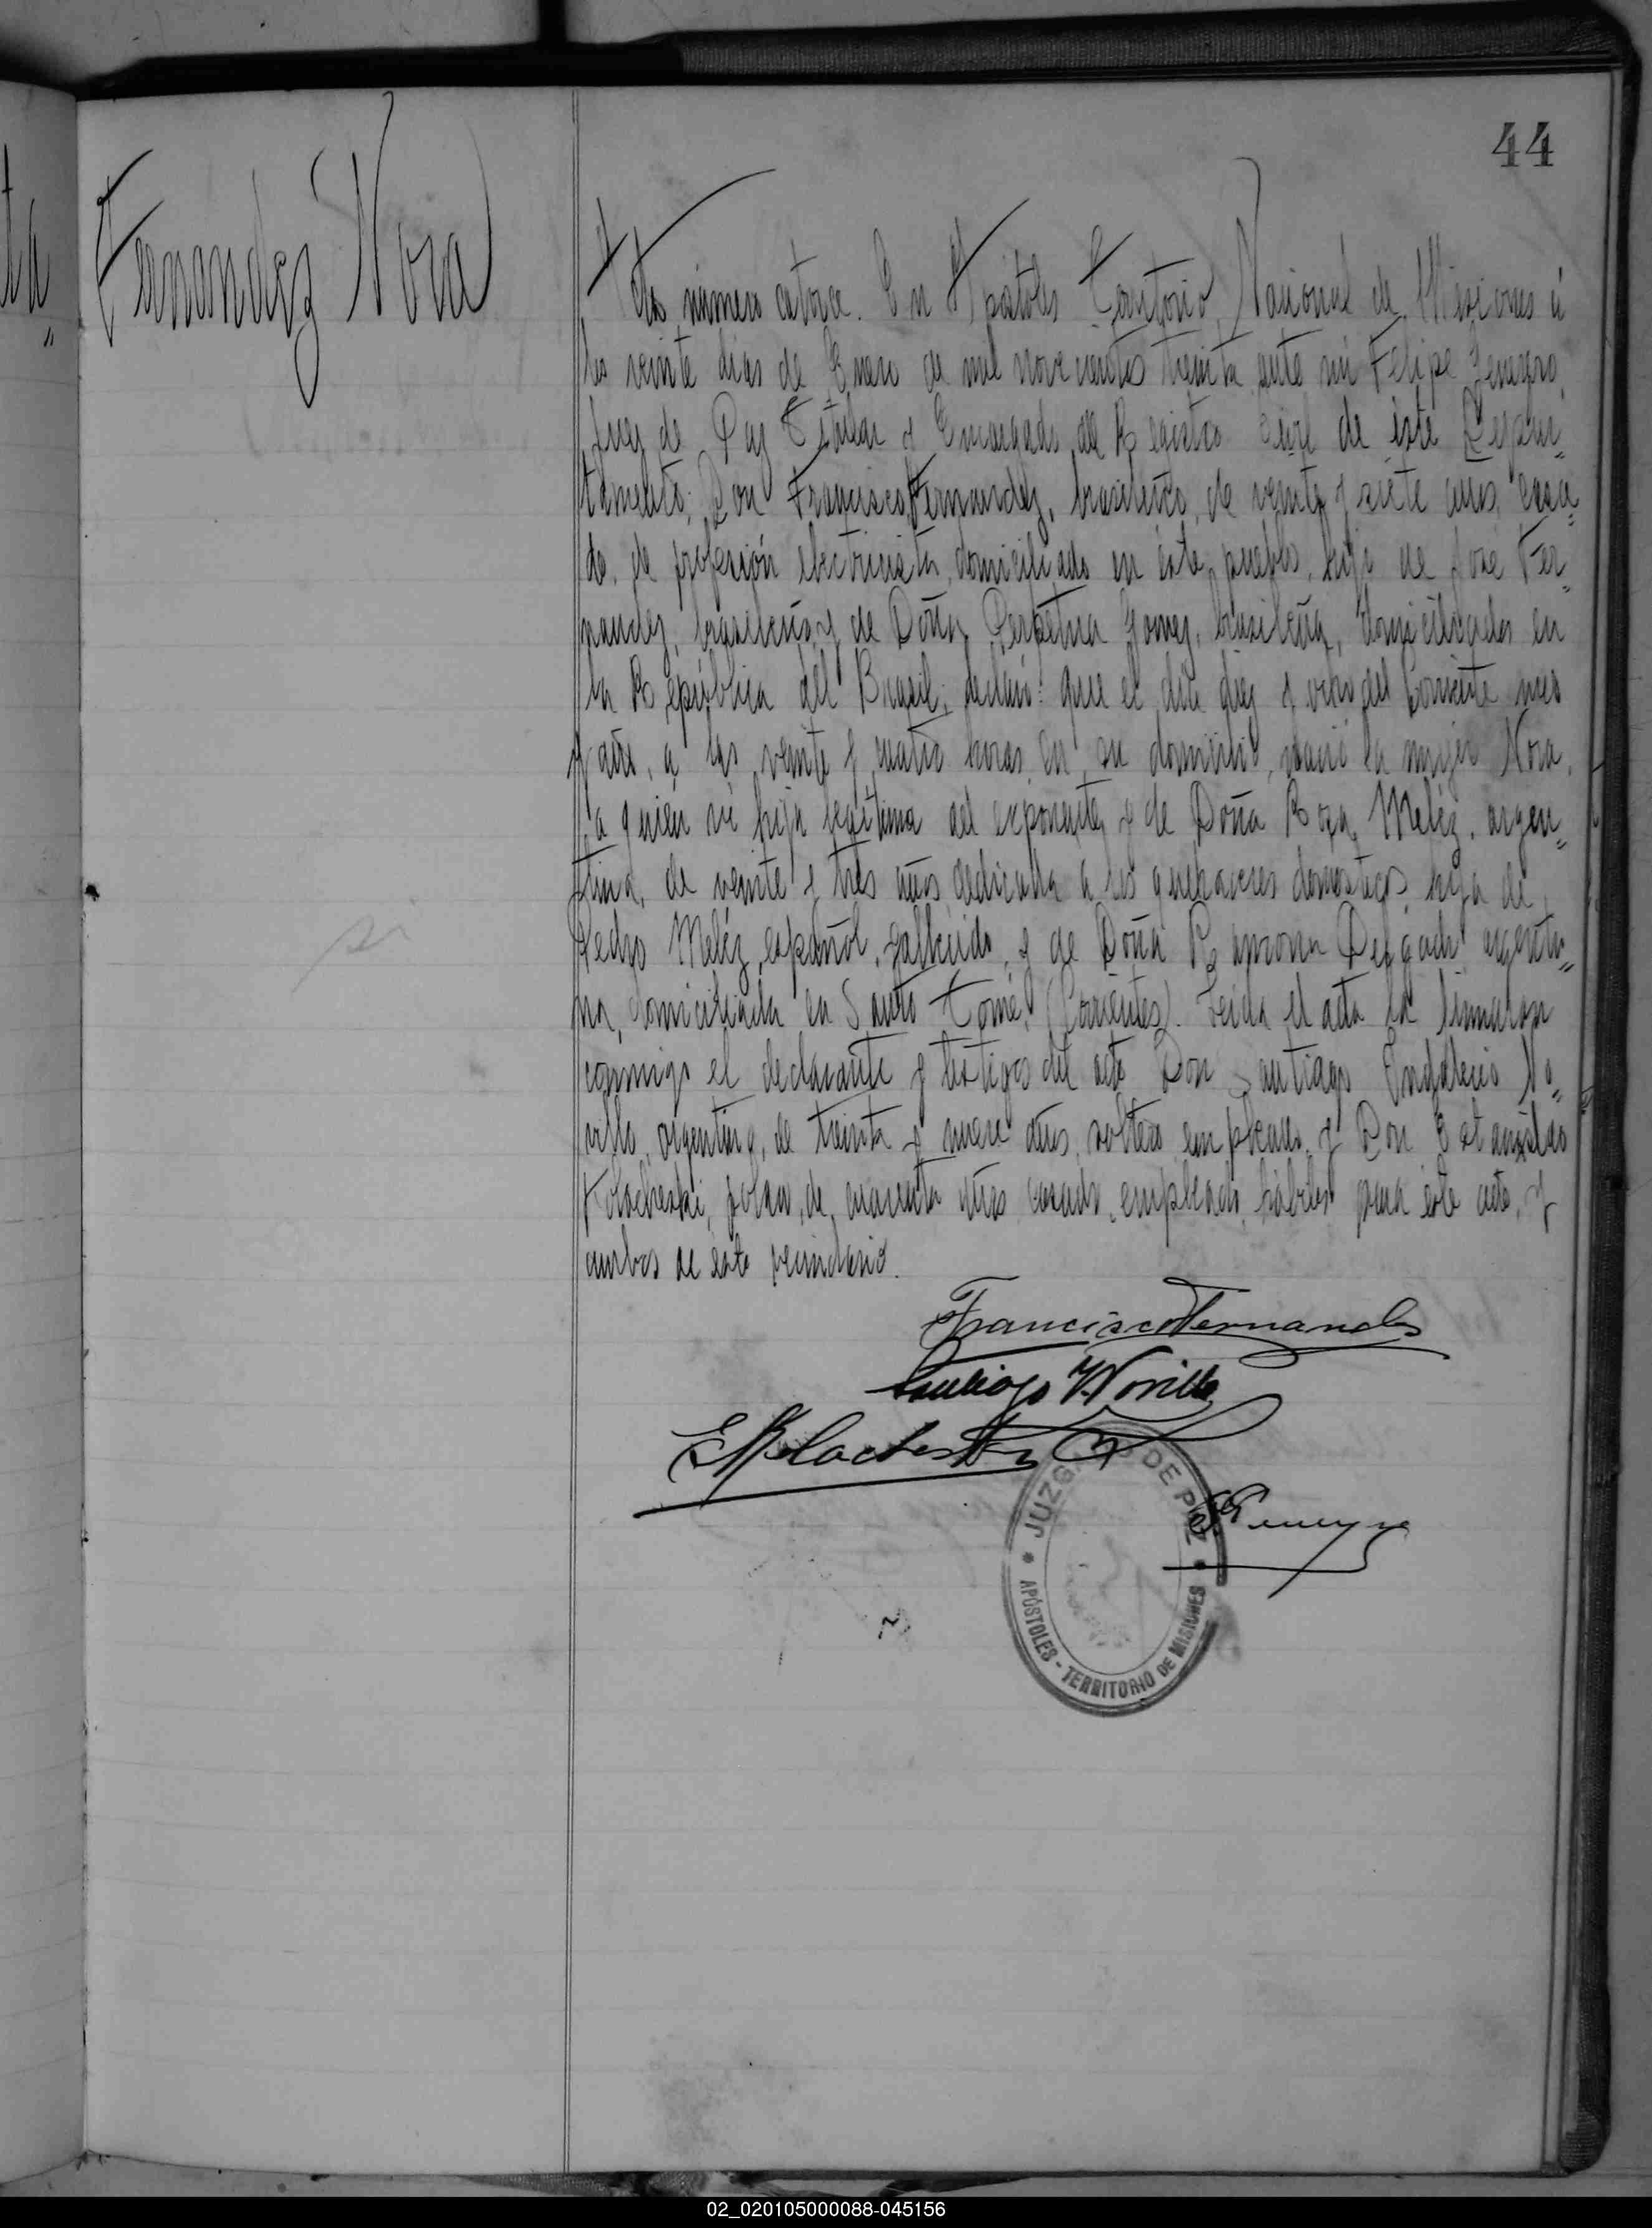 44
Fernandez Nora
Acta número catorce. En Apóstoles Territorio Nacional de Misiones á
los veinte dias de Enero de mil novecientos treinta ante mi Felipe Geneyro
Juez de Paz Titular y Encargado del Registro Civil de éste Depar=
tamento; Don Francisco Fernandez, brasileño, de veinte y siete años, casa=
do, de profesión electricista, domiciliado en éste pueblo, hijo de José Fer=
nandez, brasileño y de Doña Perpétua Gomez, brasileña, domiciliados en
la República del Brasil; declaró: que el dia diez y ocho del corriente mes
y año, a las veinte y cuatro horas en su domicilio, nació la mujer Nora,
a quién vi hija legítima del exponente y de Doña Rosa Meléz, argen=
tina, de veinte y tres años dedicada a los quehaceres domésticos hija de
Pedro Meléz, español, fallecido, y de Doña Ramona Delgado argenti=
na, domiciliada en Santo Tomé, (Corrientes). Leida el acta la firmaron
conmigo el declarante y testigos del acto Don Santiago Indalecio No=
villo, argentino, de treinta y nueve años, soltero, empleado, y Don Estanislao
Klacheski, polaco, de cuarenta años casado, empleado, hábiles para éste acto, y
ambos de éste vecindario.
Francisco Fernandes
Santiago I. Novillo
E Klacheski
F Geneyro
JUZGADO DE PAZ
APÓSTOLES - TERRITORIO DE MISIONES
si
02_020105000088-045156